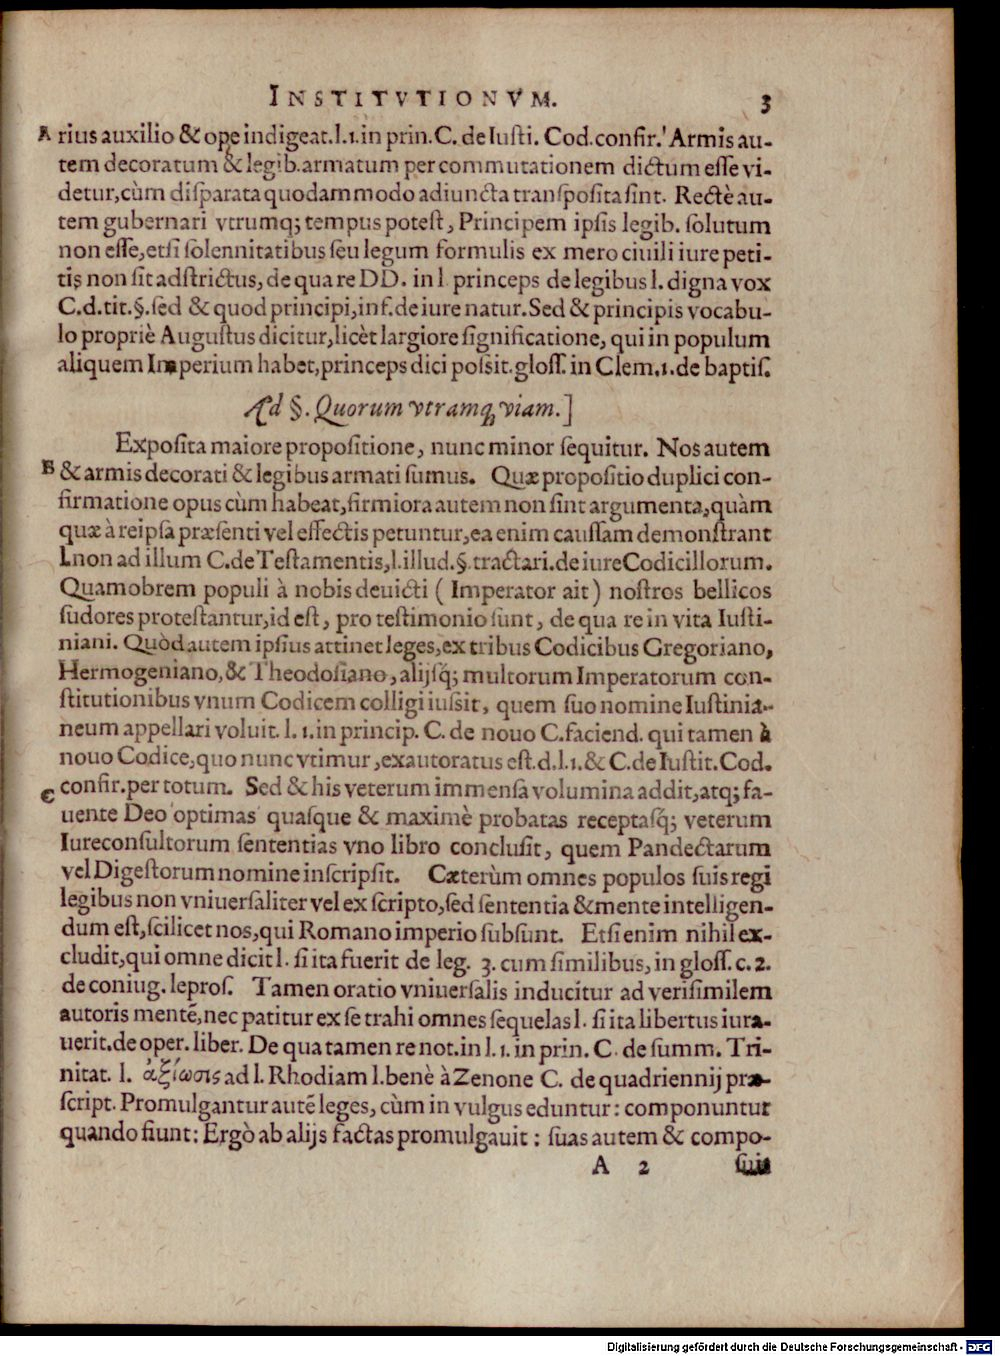 INSTITVTIONVM. 3
A rius auxilio & ope indigeat.l.1.in prin.C. de Iusti. Cod.confir.' Armis au-
tem decoratum & legib.armatum per commutationem dictum esse vi-
detur,cùm disparata quodammodo adiuncta transposita sint. Rectè au-
tem gubernari vtrumq; tempus potest, Principem ipsis legib. solutum
non esse,etsi solennitatibus seu legum formulis ex mero ciuili iure peti-
tis non sit adstrictus, de qua re DD. in l. princeps de legibus l. digna vox
C.d.tit.§.sed & quod principi,inf.de iure natur.Sed & principis vocabu-
lo propriè Augustus dicitur,licèt largiore significatione, qui in populum
aliquem Imperium habet,princeps dici possit.gloss. in Clem.1.de baptis.
Ad §. Quorum vtramq; viam.]
Exposita maiore propositione, nunc minor sequitur. Nos autem
B & armis decorati & legibus armati sumus. Quæ propositio duplici con-
firmatione opus cùm habeat,firmiora autem non sint argumenta,quàm
quæ à reipsa præsenti vel effectis petuntur,ea enim caussam demonstrant
l.non ad illum C.de Testamentis,l.illud.§.tractari.de iure Codicillorum.
Quamobrem populi à nobis deuicti ( Imperator ait ) nostros bellicos
sudores protestantur,id est, pro testimonio sunt, de qua re in vita Iusti-
niani. Quòd autem ipsius attinet leges,ex tribus Codicibus Gregoriano,
Hermogeniano,& Theodosiano, alijsq; multorum Imperatorum con-
stitutionibus vnum Codicem colligi iussit, quem suo nomine Iustinia-
neum appellari voluit. l. 1.in princip. C. de nouo C.faciend. qui tamen à
nouo Codice,quo nunc vtimur,exautoratus est.d.l.1.& C.de Iustit.Cod.
C confir.per totum. Sed & his veterum immensa volumina addit,atq; fa-
uente Deo optimas quasque & maximè probatas receptasq; veterum
Iureconsultorum sententias vno libro conclusit, quem Pandectarum
vel Digestorum nomine inscripsit. Cæterùm omnes populos suis regi
legibus non vniuersaliter vel ex scripto,sed sententia & mente intelligen-
dum est,scilicet nos,qui Romano imperio subsunt. Etsi enim nihil ex-
cludit,qui omne dicit l. si ita fuerit de leg. 3. cum similibus, in gloss. c. 2.
de coniug. lepros. Tamen oratio vniuersalis inducitur ad verisimilem
autoris mentē,nec patitur ex se trahi omnes sequelas l. si ita libertus iura-
uerit.de oper. liber. De qua tamen re not.in l. 1. in prin. C. de summ. Tri-
nitat. l. ἀξίωσις ad l. Rhodiam l.benè à Zenone C. de quadriennij præ-
script. Promulgantur autē leges, cùm in vulgus eduntur : componuntur
quando fiunt: Ergò ab alijs factas promulgauit : suas autem & compo-
A 2 suit
Digitalisierung gefördert durch die Deutsche Forschungsgemeinschaft - DFG